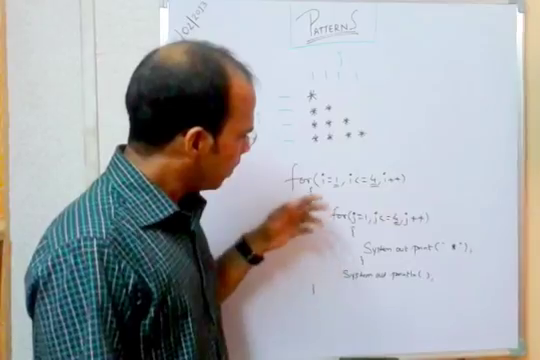 /02/2013
PATTERNS
j
1 1 1 1
*
* *
* * *
* * * *
for(i=1, i<=4, i++)
{
for(j=1, j<=i, j++)
{
System out.print(" * "),
}
System out.println(),
}